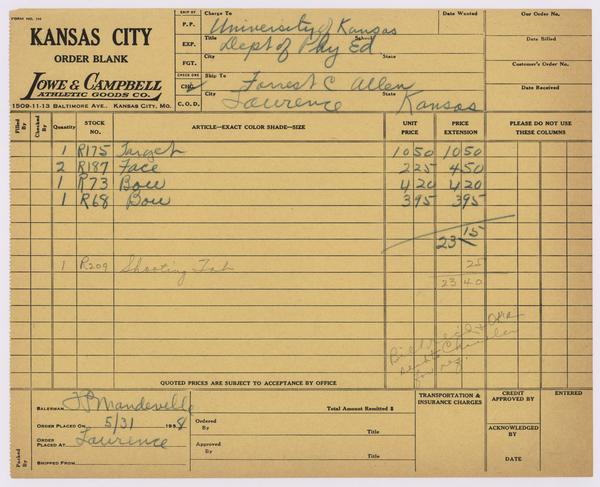 FORM NO. 114
KANSAS CITY
ORDER BLANK
LOWE & CAMPBELL
ATHLETIC GOODS CO.
1509-11-13 BALTIMORE AVE., KANSAS CITY, MO.
SHIP BY
P.P.
EXP.
FGT.
CHECK ONE
CHG.
C.O.D.
Charge To University of Kansas
Title School
Dept of Phy Ed
City State
Ship To Forrest C Allen
City State
Lawrence Kansas
Date Wanted
Our Order No.
Date Billed
Customer's Order No.
Date Received
Filled By
Checked By
Quantity
STOCK NO.
ARTICLE—EXACT COLOR SHADE—SIZE
UNIT PRICE
PRICE EXTENSION
PLEASE DO NOT USE THESE COLUMNS
1 R175 Target 10 50 10 50
2 R187 Face 2 25 4 50
1 R73 Bow 4 20 4 20
1 R68 Bow 3 95 3 95
23 15
1 R209 Shooting Tab 25
23 40
QUOTED PRICES ARE SUBJECT TO ACCEPTANCE BY OFFICE
Packed By
SALESMAN J P Mandeville
ORDER PLACED ON 5/31 1938
ORDER PLACED AT Lawrence
SHIPPED FROM
Total Amount Remitted $
Ordered By
Title
Approved By
Title
TRANSPORTATION & INSURANCE CHARGES
CREDIT APPROVED
ENTERED
ACKNOWLEDGED BY
DATE